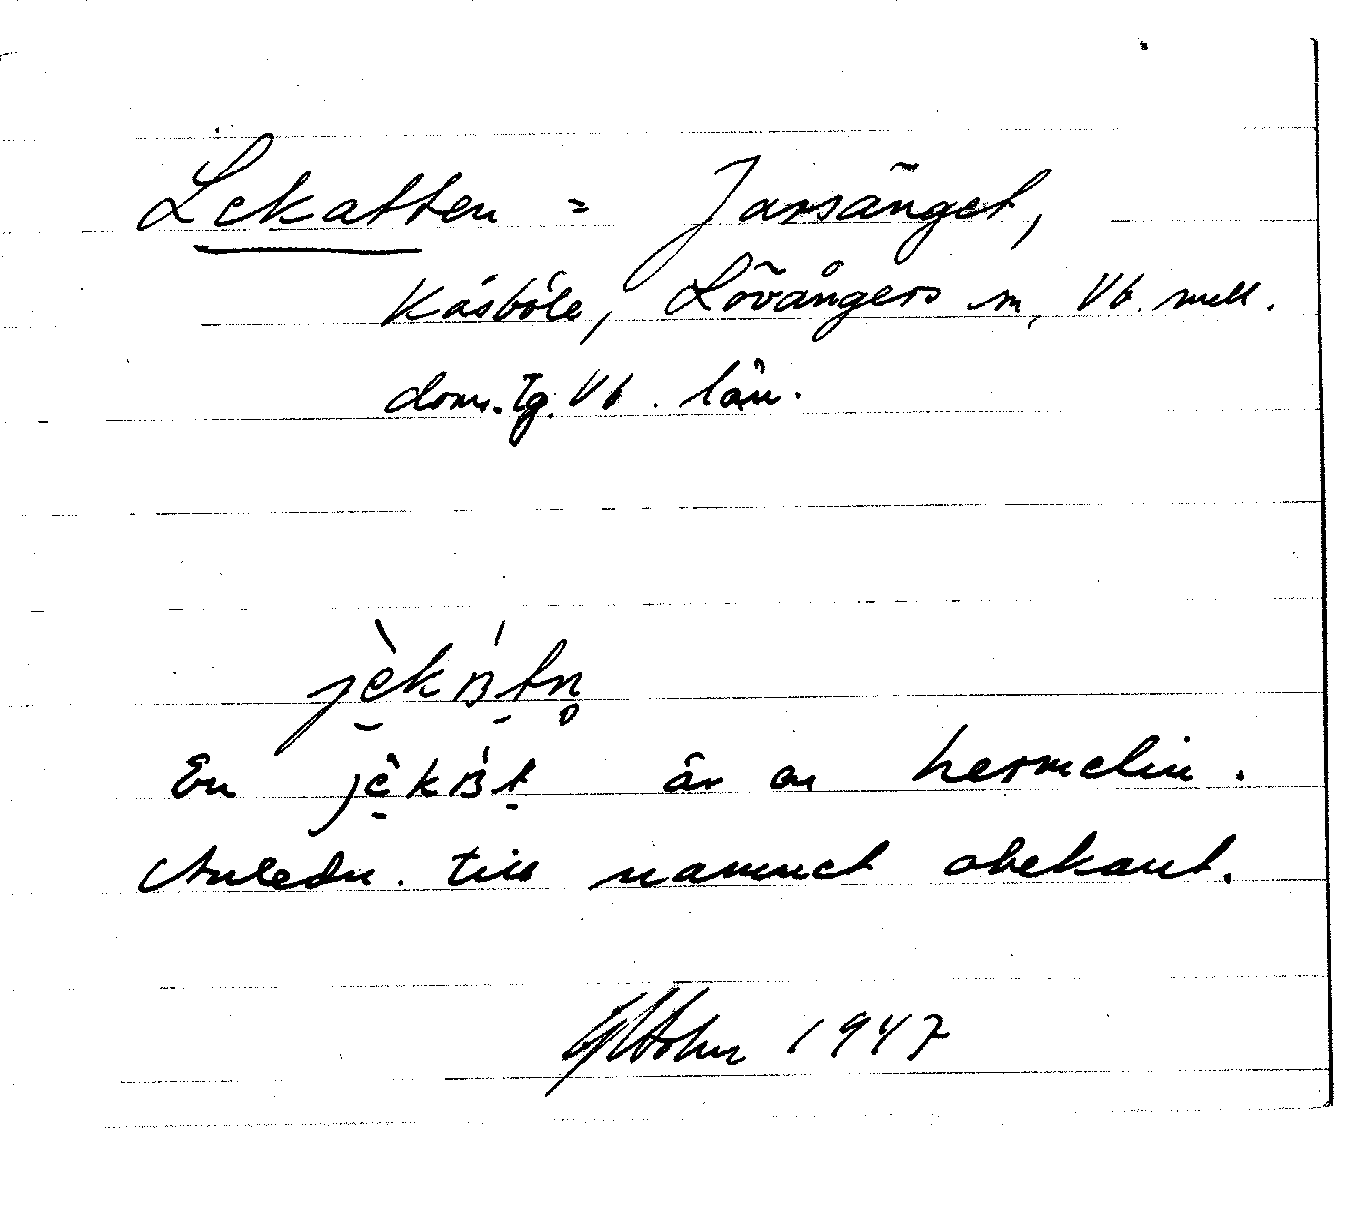 Lekatten = Jarsänget,
Kåsböle, Lövångers sn, Vb. mell.
doms.tg. Vb. län.
En är en hermelin.
Anledn. till namnet obekant.
1947